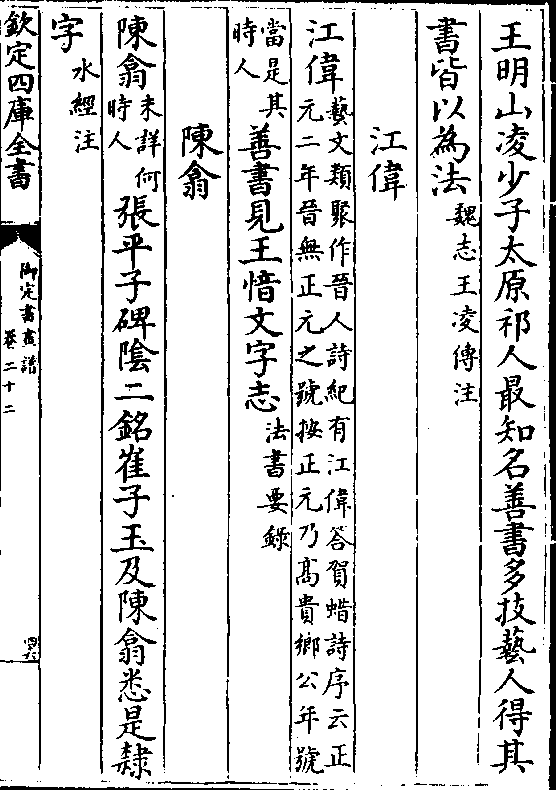 王明山凌少子太原祁人最知名善書多技藝人得其
書皆以為法魏志王凌傳注
江偉
江偉藝文類聚作晉人詩紀有江偉答賀蜡詩序云正
元二年晉無正元之號按正元乃髙貴鄉公年號
當是其
時人善書見王愔文字志法書要錄
陳翕
陳翕未詳何
時人張平子碑陰二銘崔子玉及陳翕悉是隸
字水經注
欽定四庫全書
御定書畫譜
卷二十二